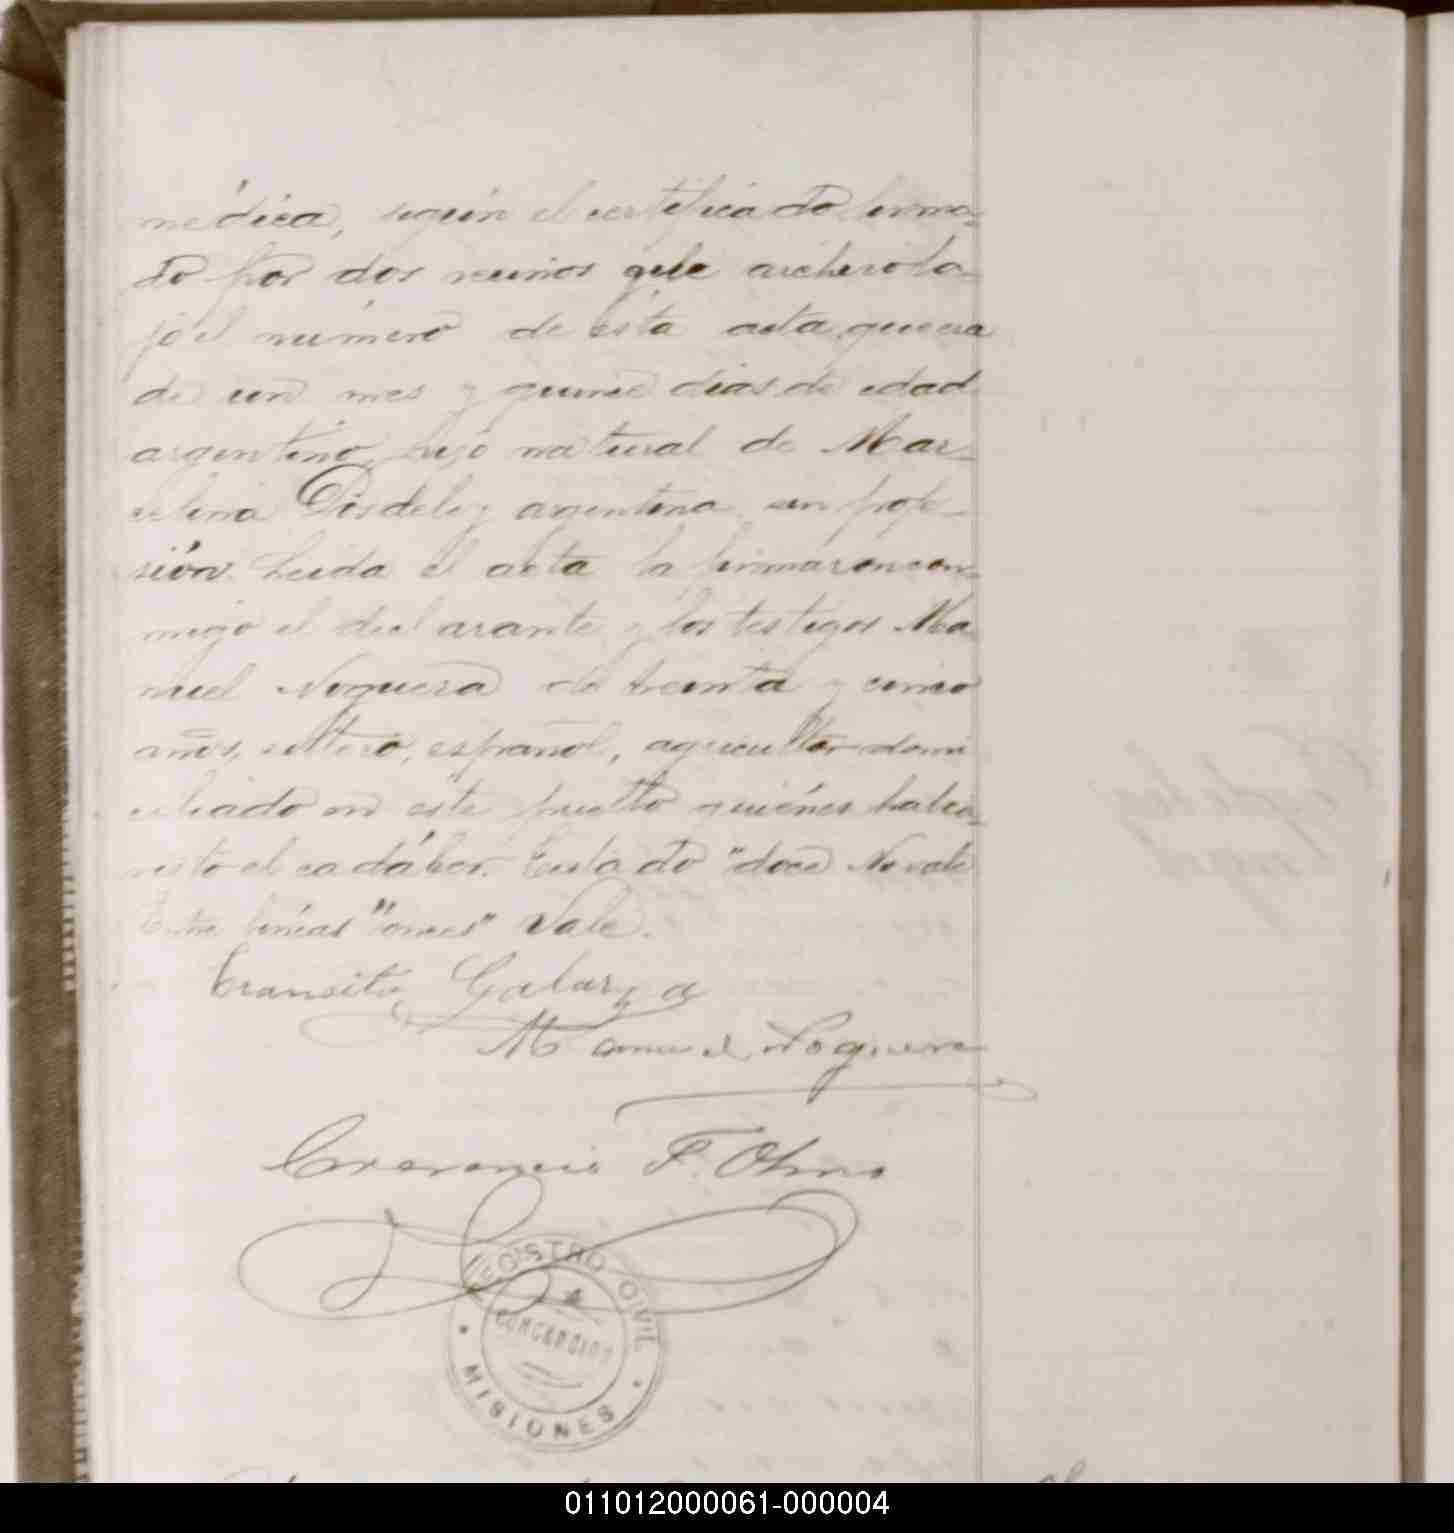 médica, según el certificado firma-
do por dos vecinos que archivo ba-
jo el número de ésta acta, que era
de un mes y quince dias de edad
argentino, hijo natural de Mar-
celina argentina, sin profe-
sión. Leida el acta la firmáron con-
migo el declarante y los testigos Ma
nuel Noguera de treinta y cinco
años, soltero, español, agricultor domi
ciliado en este pueblo quiénes habian
visto el cadáber. Testado "doce" No vale
Entre linéas "onces" Vale.
Transito Galarza
Manuel Noguera
F.
REGISTRO CIVIL
CONCEPCION
MISIONES
011012000061-000004